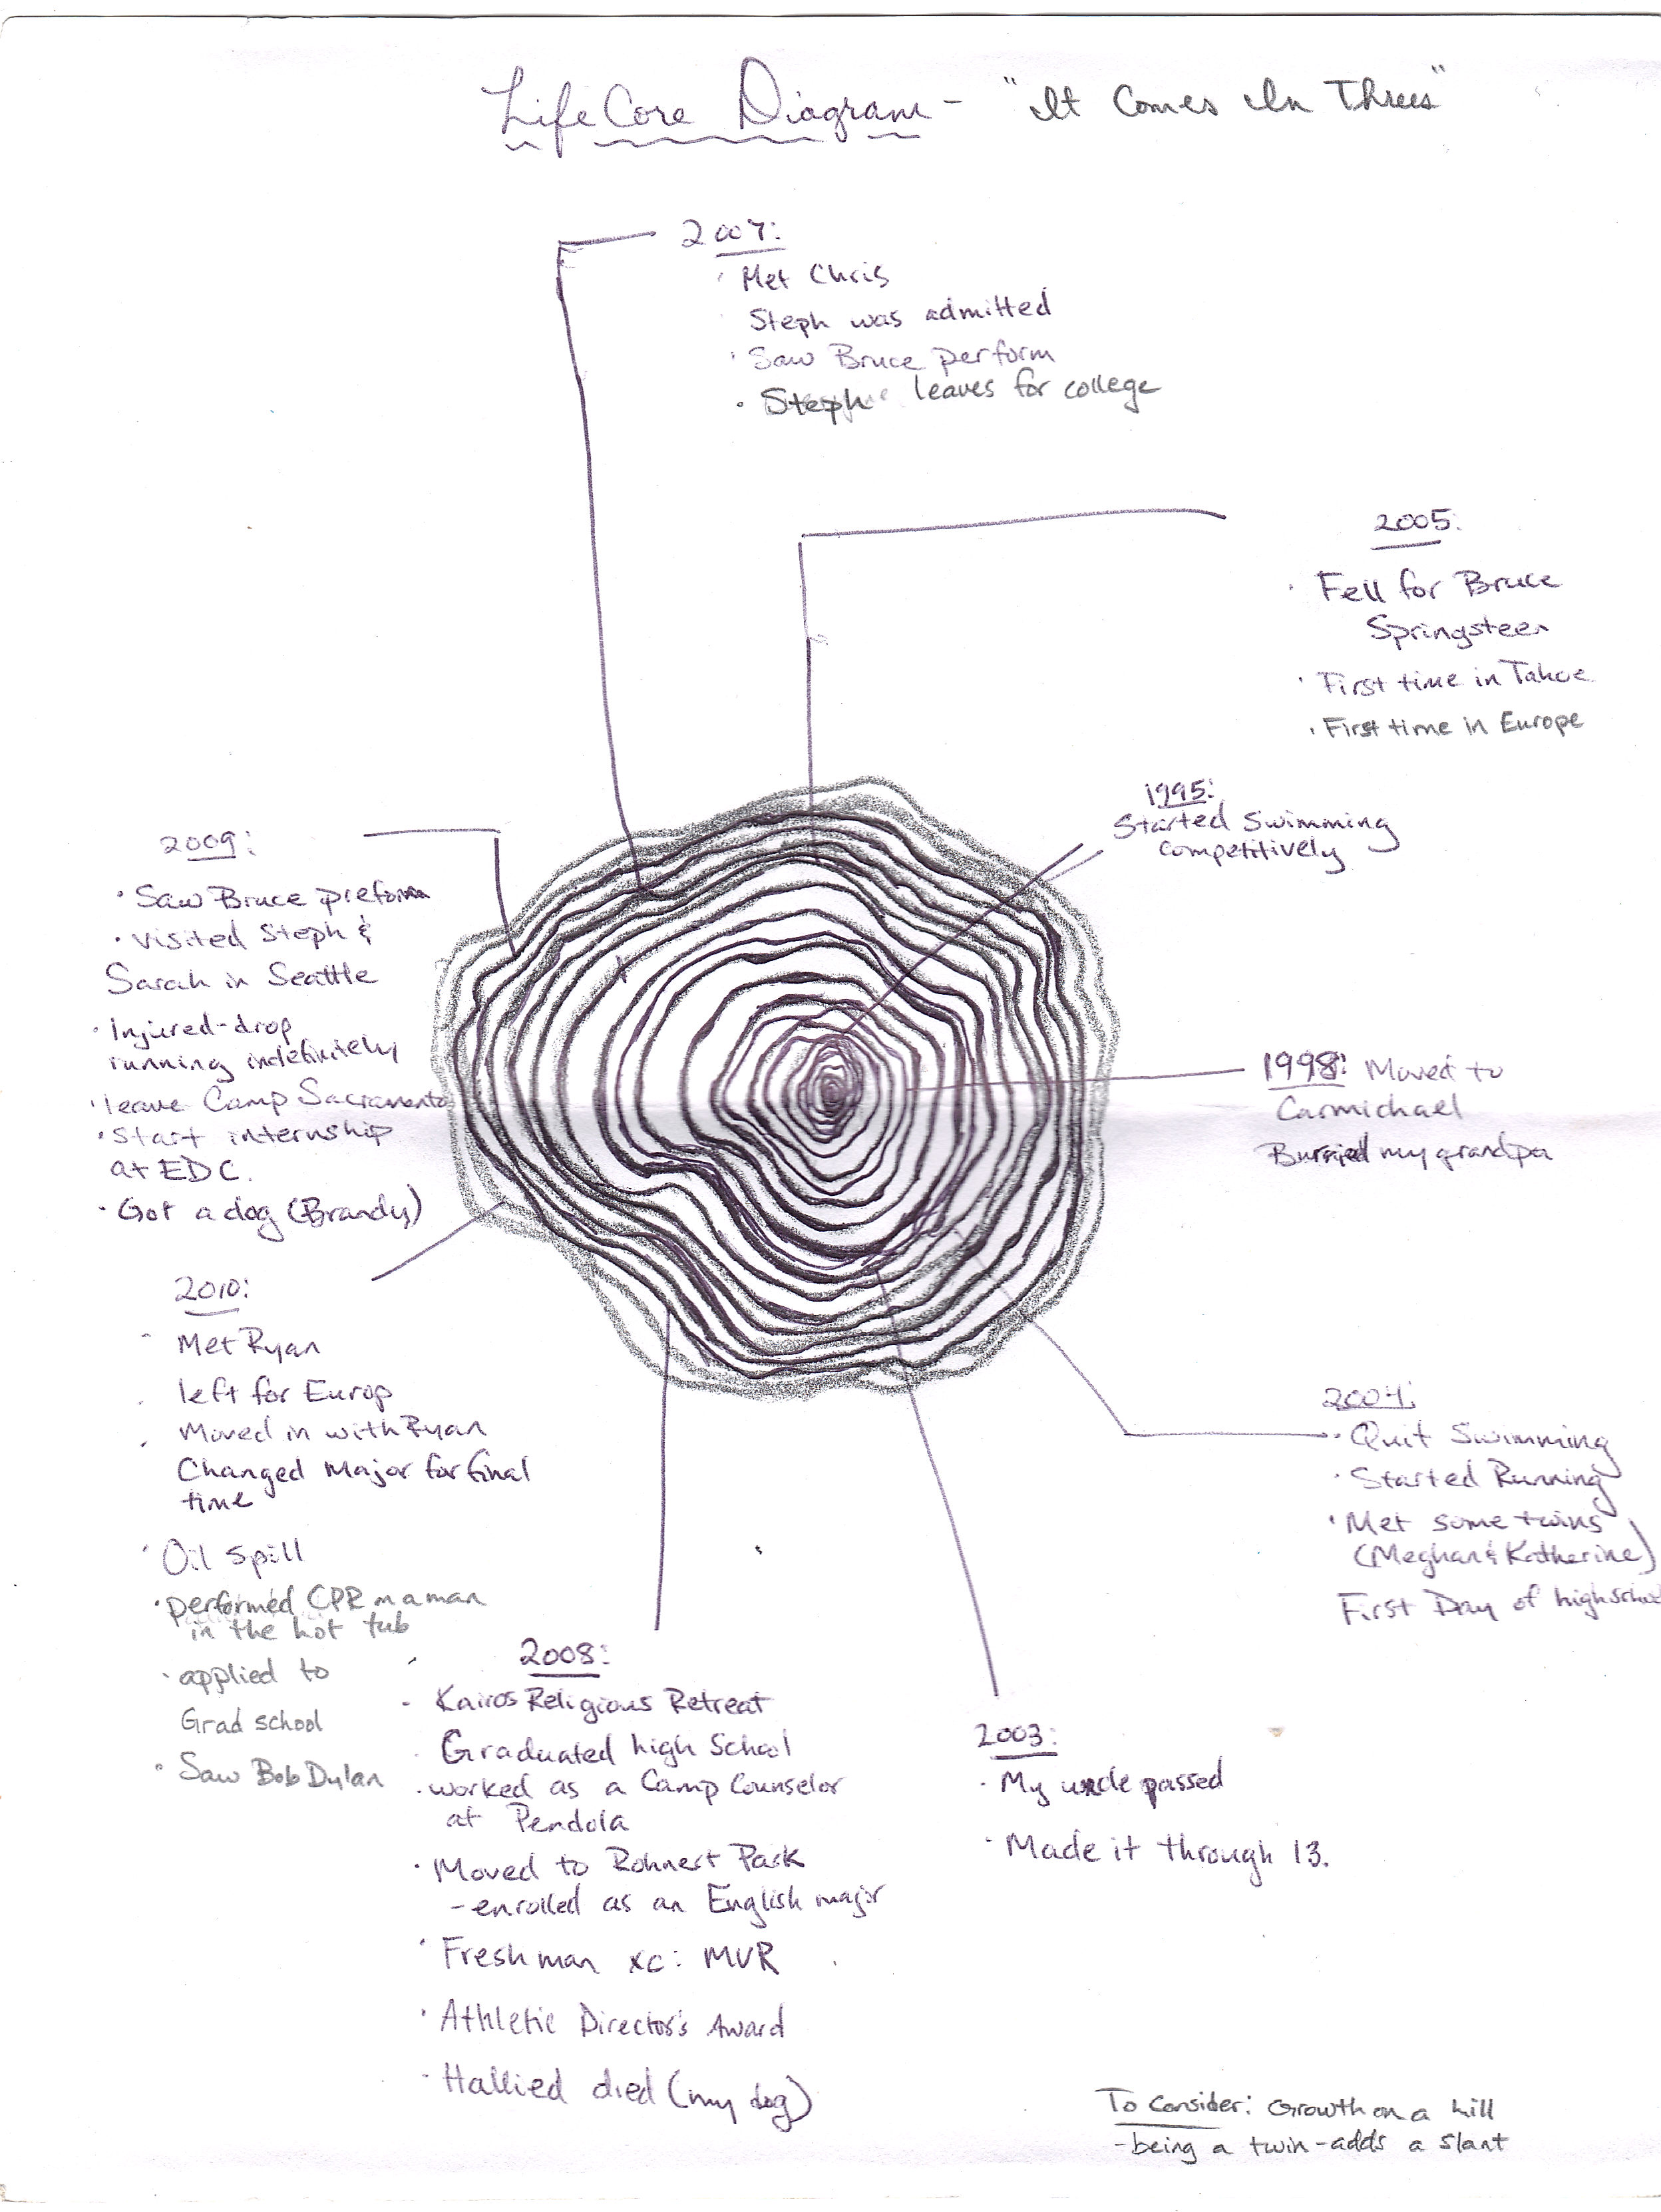 Life Core Diagram - "It Comes In Threes"
2007:
· Met Chris
Steph was admitted
· Saw Bruce perform
· Steph leaves for college
2005:
· Fell for Bruce
Springsteen
· First time in Tahoe
· First time in Europe
1995:
Started Swimming
competitively
1998: Moved to
Carmichael
Burried my grandpa
2004:
· Quit Swimming
· Started Running
· Met some twins
(Meghan & Katherine)
First Day of highschool
2003:
· My uncle passed
· Made it through 13.
2008:
· Kairos Religious Retreat
· Graduated high School
· worked as a Camp Counselor
at Pendola
· Moved to Rohnert Park
- enrolled as an English major
· Freshman xc: MVR
· Athletic Director's Award
· Hallied died (my dog)
2009:
· Saw Bruce preform
· visited Steph &
Sarah in Seattle
· Injured-drop
running indefinitely
· leave Camp Sacramento
· Start internship
at EDC.
· Got a dog (Brandy)
2010:
· Met Ryan
· left for Europ
· Moved in with Ryan
Changed Major for final
time
· Oil Spill
· performed CPR on a man
in the hot tub
· applied to
Grad school
· Saw Bob Dylan
To Consider: Growth on a hill
- being a twin - adds a slant